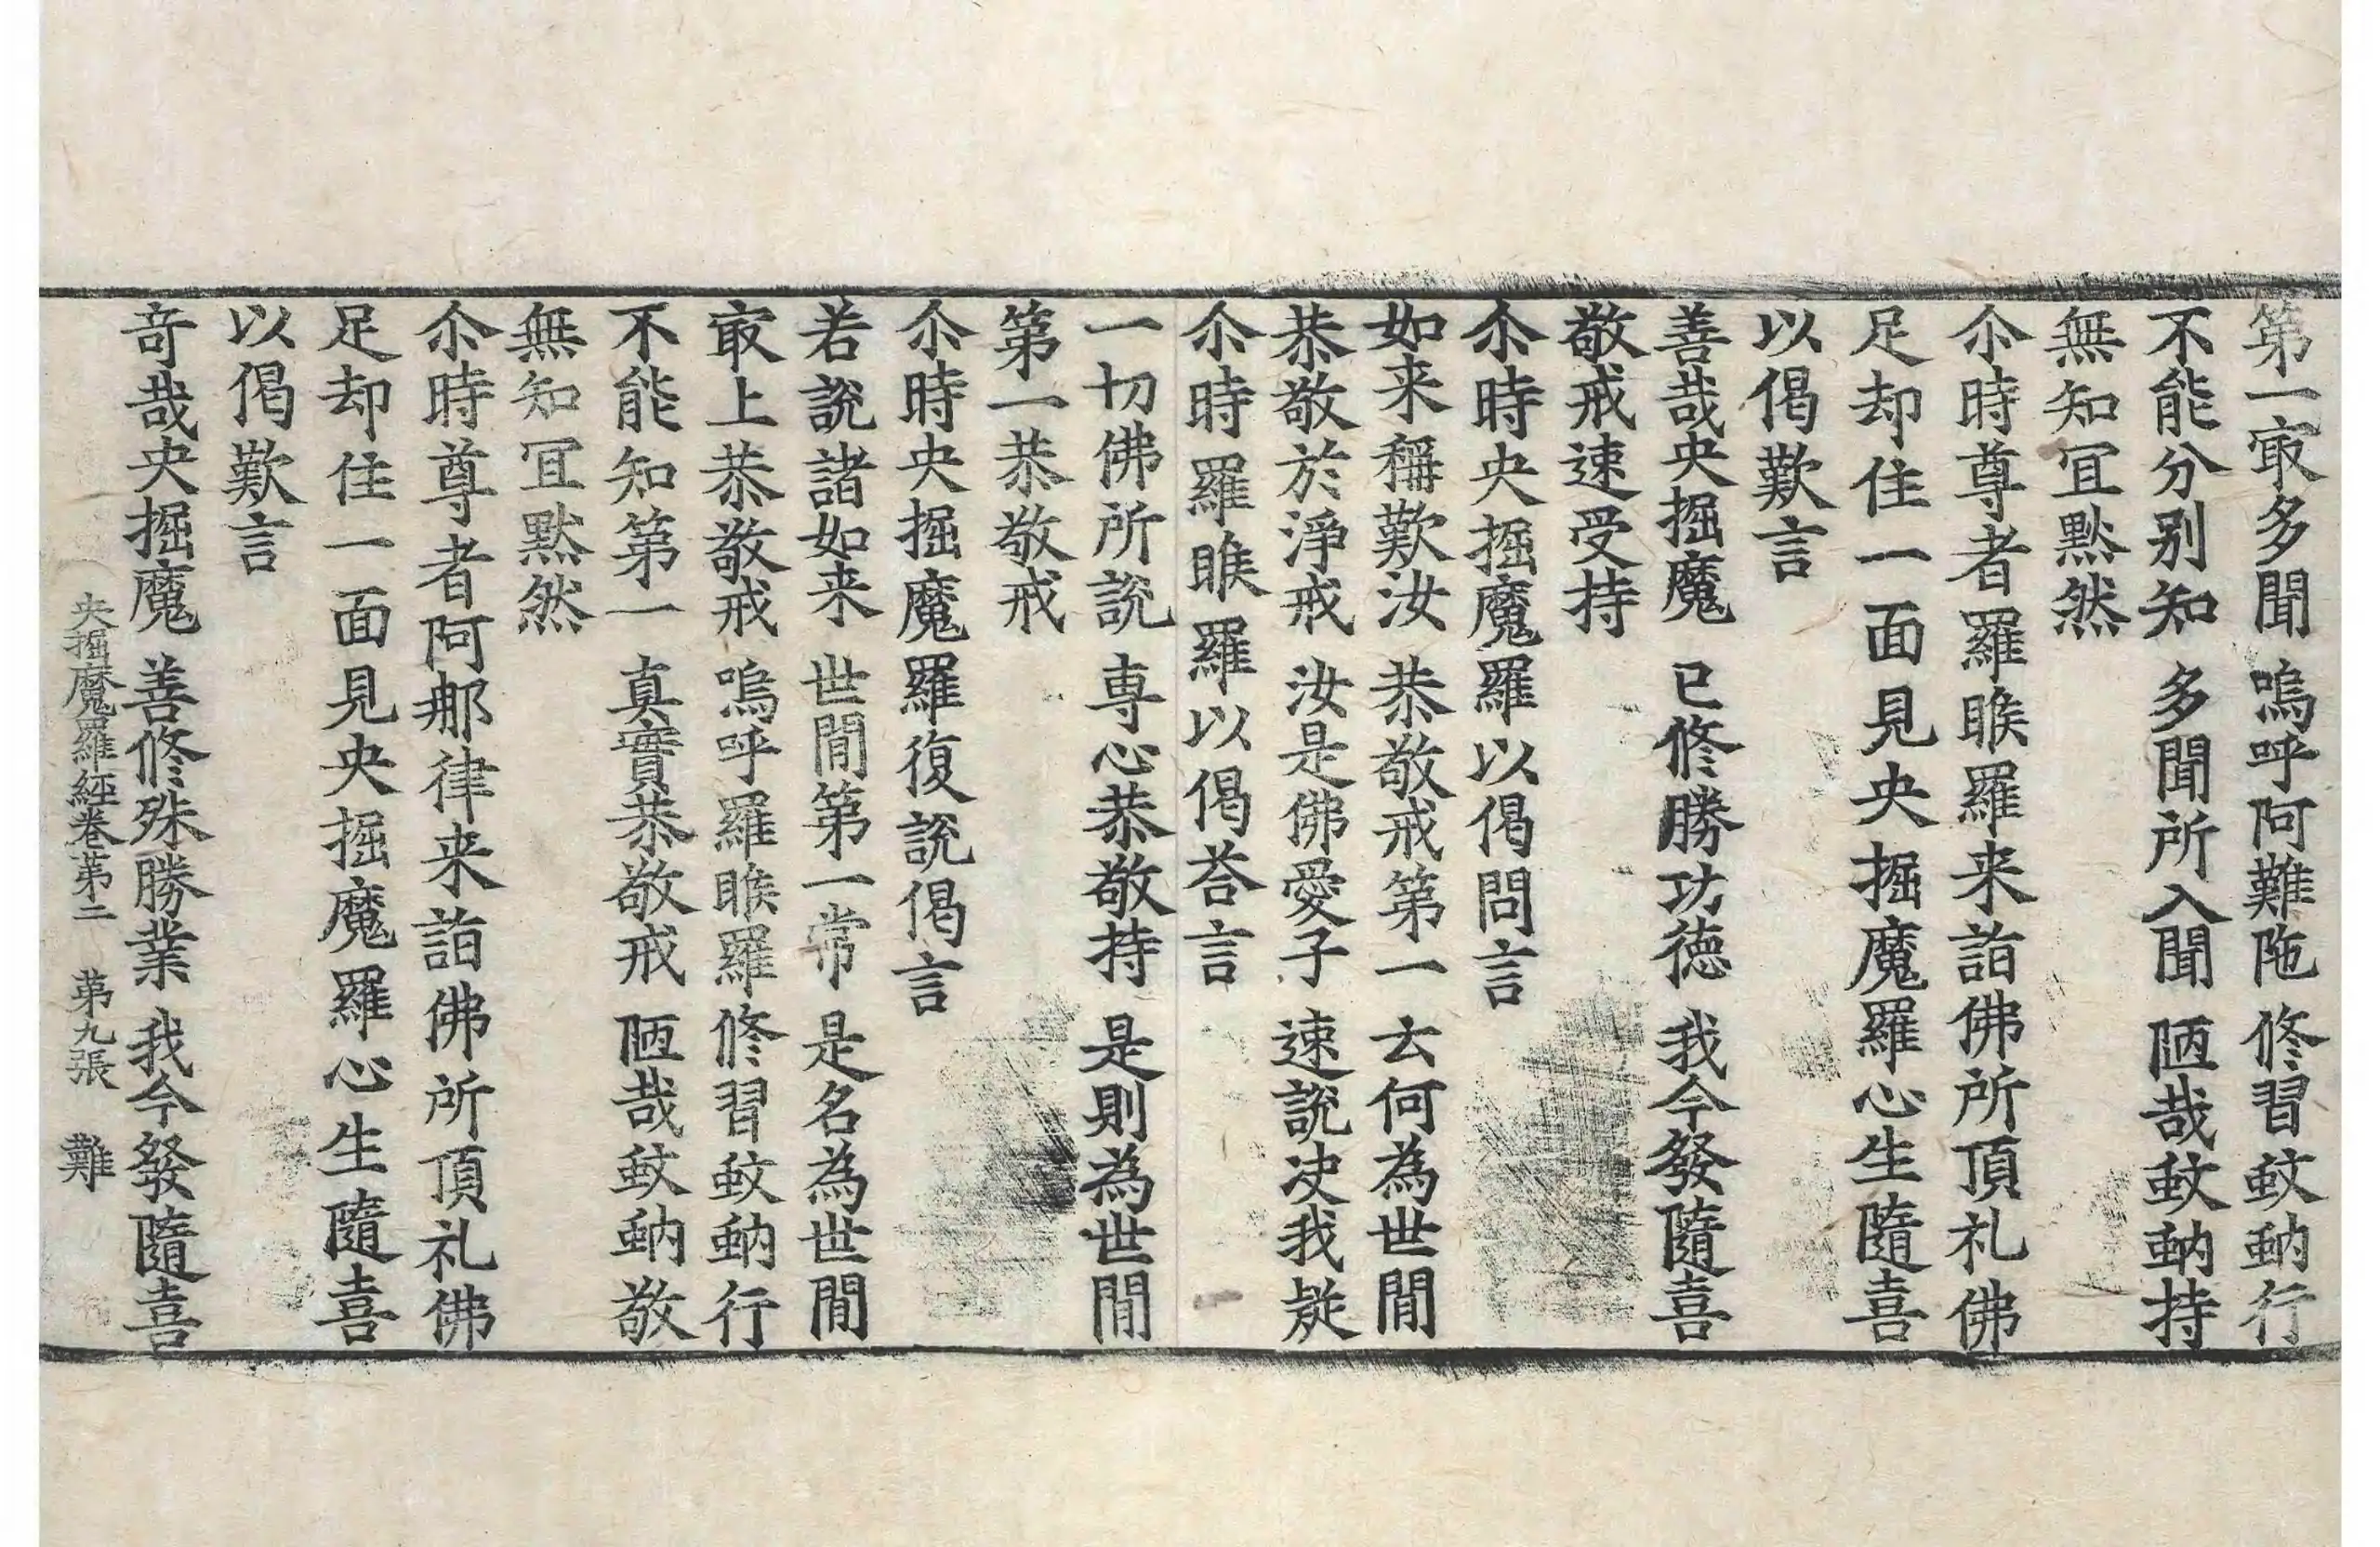 第一㝡多聞 嗚呼阿難陁 修習蚊蚋行
不能分别知 多聞所入聞 陋哉蚊蚋持
無知冝黙然
尒時尊者羅睺羅来詣佛所頂礼佛
足却住一面見央掘魔羅心生隨喜
以偈歎言
善哉央掘魔 已修勝功徳 我今發隨喜
敬戒速受持
尒時央掘魔羅以偈問言
如来稱歎汝 恭敬戒第一 云何為世間
恭敬於淨戒 汝是佛愛子 速說决我疑
尒時羅睺羅以偈荅言
一切佛所說 専心恭敬持 是則為世間
第一恭敬戒
尒時央掘魔羅復說偈言
若說諸如来 世間第一常 是名為世間
㝡上恭敬戒 嗚呼羅睺羅 修習蚊蚋行
不能知第一 真實恭敬戒 陋哉蚊蚋敬
無知冝黙然
尒時尊者阿那律来詣佛所頂礼佛
足却住一面見央掘魔羅心生隨喜
以偈歎言
竒哉央掘魔 善修殊勝業 我今發隨喜
央掘魔羅經卷苐二 苐九張 難